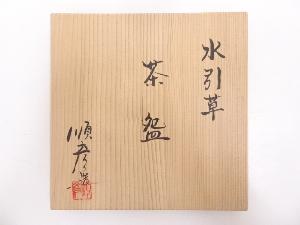 水引草
茶盌
順彦